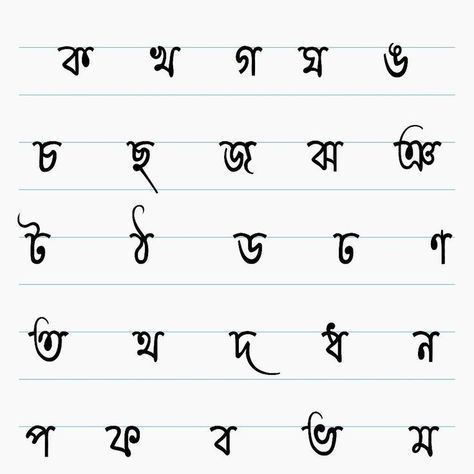 ক খ গ ঘ ঙ
চ ছ জ ঝ ঞ
ট ঠ ড ঢ ণ
ত থ দ ধ ন
প ফ ব ভ ম